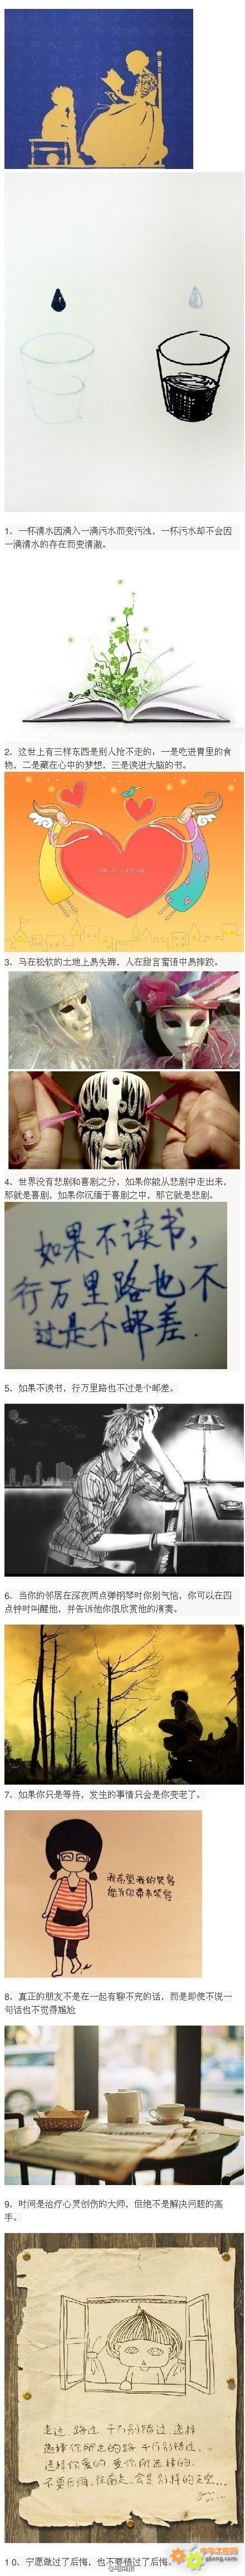 1、一杯清水因滴入一滴污水而变污浊，一杯污水却不会因
一滴清水的存在而变清澈。
2、这世上有三样东西是别人抢不走的，一是吃进胃里的食
物，二是藏在心中的梦想，三是读进大脑的书。
3、马在松软的土地上易失蹄，人在甜言蜜语中易摔跤。
4、世界没有悲剧和喜剧之分，如果你能从悲剧中走出来，
那就是喜剧，如果你沉缅于喜剧之中，那它就是悲剧。
如果不读书，
行万里路也不
过是个邮差.
5、如果不读书，行万里路也不过是个邮差。
6、当你的邻居在深夜两点弹钢琴时你别气恼，你可以在四
点钟时叫醒他，并告诉他你很欣赏他的演奏。
7、如果你只是等待，发生的事情只会是你变老了。
我希望我的笑容
能为你带来笑容
8、真正的朋友不是在一起有聊不完的话，而是即使不说一
句话也不觉得尴尬
9、时间是治疗心灵创伤的大师，但绝不是解决问题的高
手。
走过 路过 千万别错过.选择
选择你所走的路 千万别错过.
选择你爱的 爱你所选择的.
不要后悔，往前走，会是别样的天空...
10、宁愿做过了后悔，也不要错过了后悔。
@电商报
gkong.com